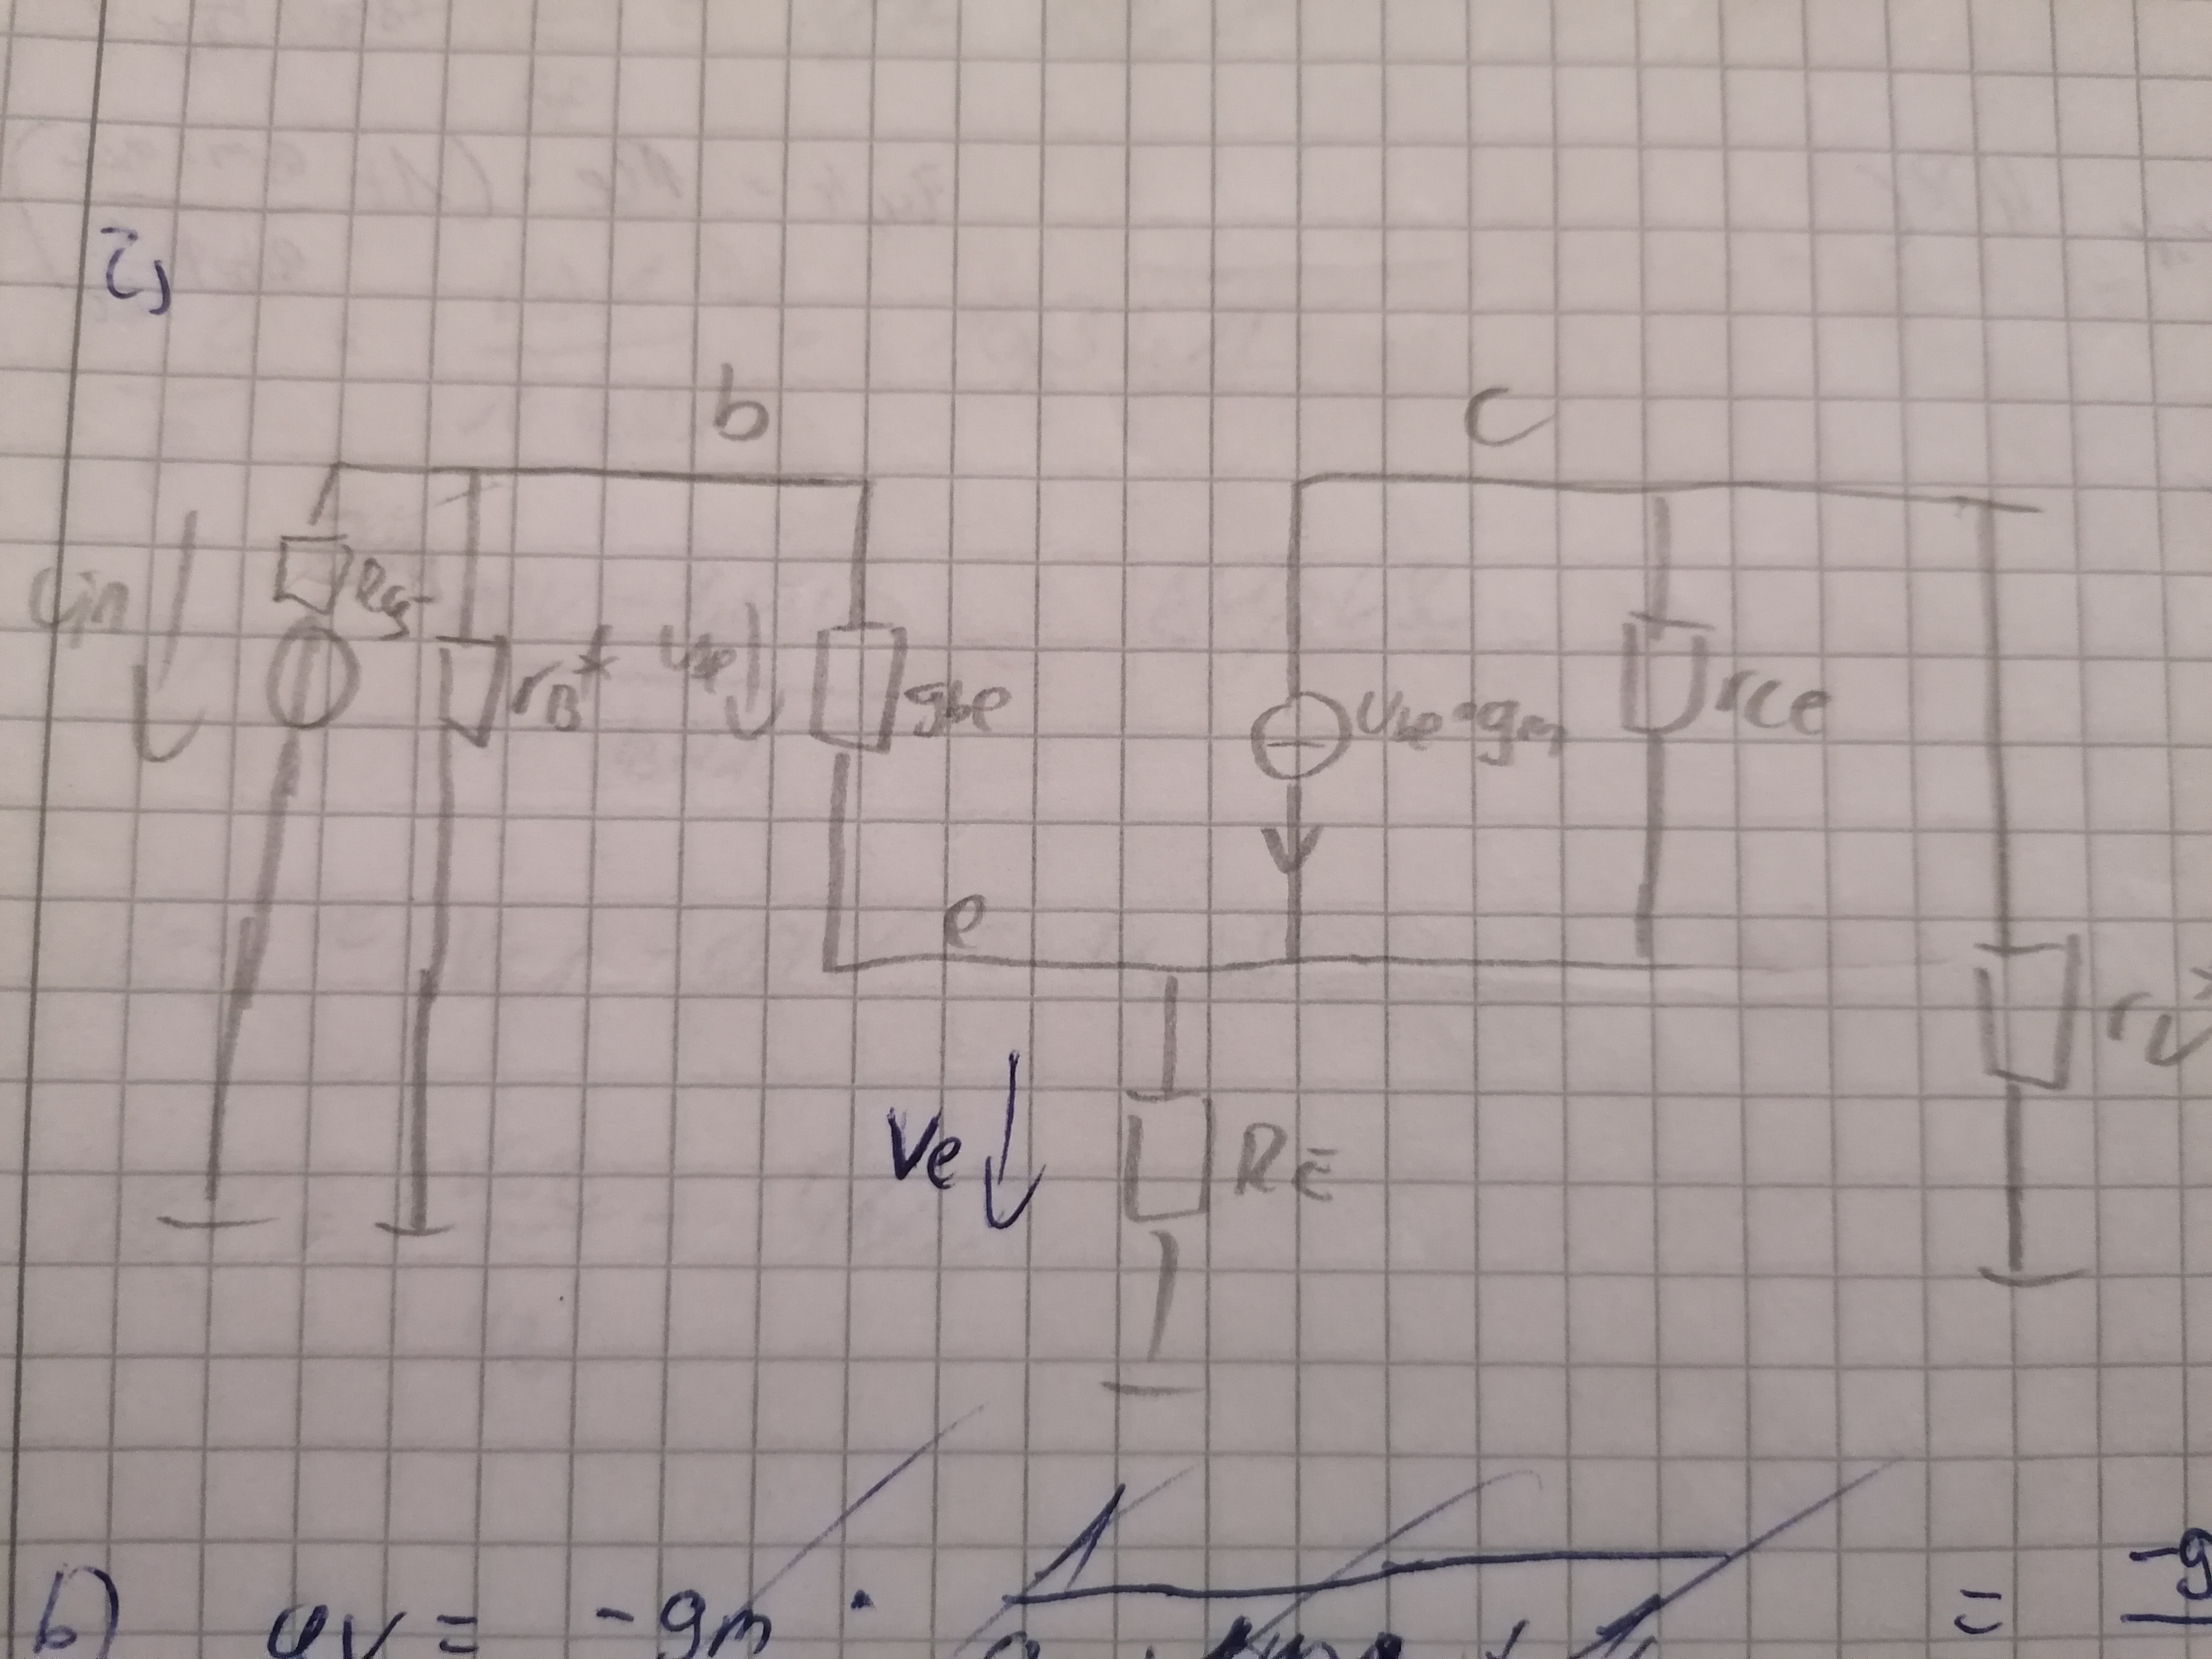 2)
b c
uin Rg rB* ube gbe ube·gm rce
e
rL*
Ve RE
b) av = -gm · = -g